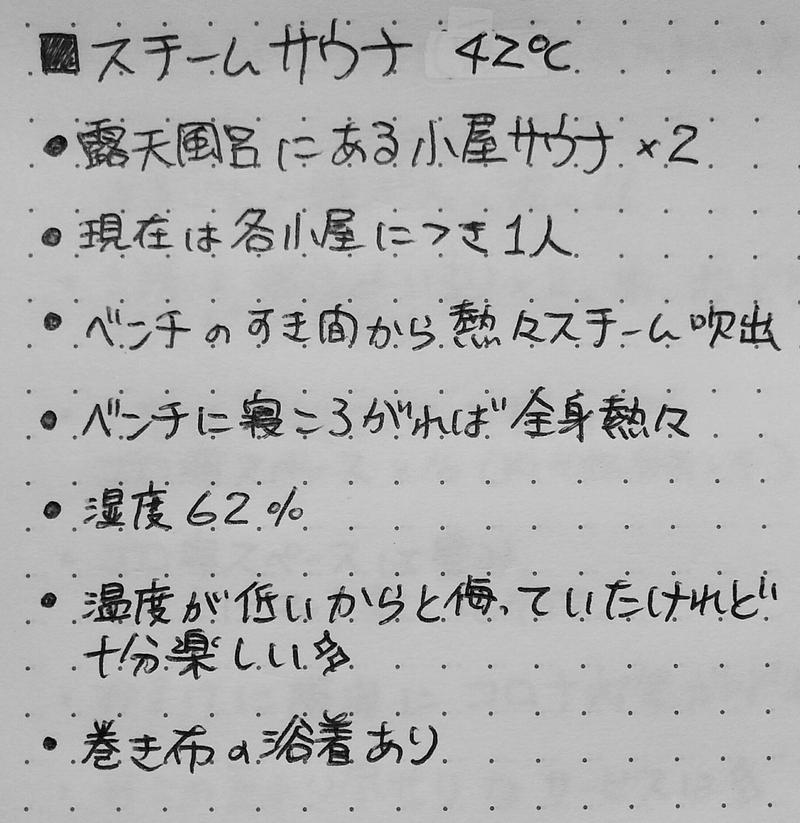 ■スチームサウナ 42℃
• 露天風呂にある小屋サウナ ×2
• 現在は各小屋につき1人
• ベンチのすき間から熱々スチーム吹出
• ベンチに寝ころがれば全身熱々
• 湿度 62%
• 温度が低いからと侮っていたけれど
十分楽しい
• 巻き布の浴着あり